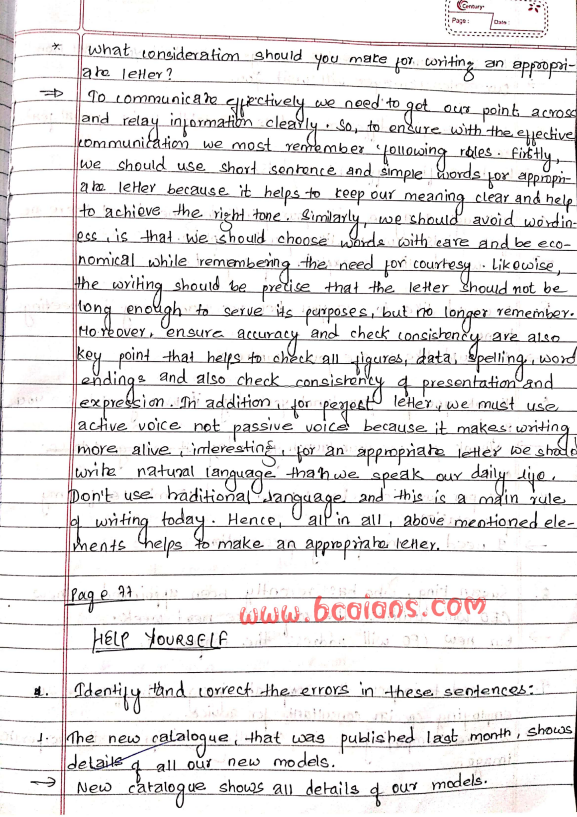 Century
Page: Date:
* What consideration should you make for writing an appropri-
ate letter?
⇒ To communicate effectively we need to get our point across
and relay information clearly. So, to ensure with the effective
communication we most remember following roles. Firstly,
we should use short sentence and simple words for appropri-
ate letter because it helps to keep our meaning clear and help
to achieve the right tone. Similarly, we should avoid wordin-
ess, is that we should choose words with care and be eco-
nomical while remembering the need for courtesy. Likewise,
the writing should be precise that the letter should not be
long enough to serve its purposes, but no longer remember.
Moreover, ensure accuracy and check consistency are also
key point that helps to check all figures, data, spelling, word
endings and also check consistency of presentation and
expression. In addition, for perfect letter, we must use
active voice not passive voice because it makes writing
more alive, interesting, for an appropriate letter we should
write natural language than we speak our daily life.
Don't use traditional language and this is a main rule
of writing today. Hence, all in all, above mentioned ele-
ments helps to make an appropriate letter.
Page 77
www.bcaians.com
HELP YOURSELF
1. Identify and correct the errors in these sentences:
1. The new catalogue, that was published last month, shows
details of all our new models.
→ New catalogue shows all details of our models.